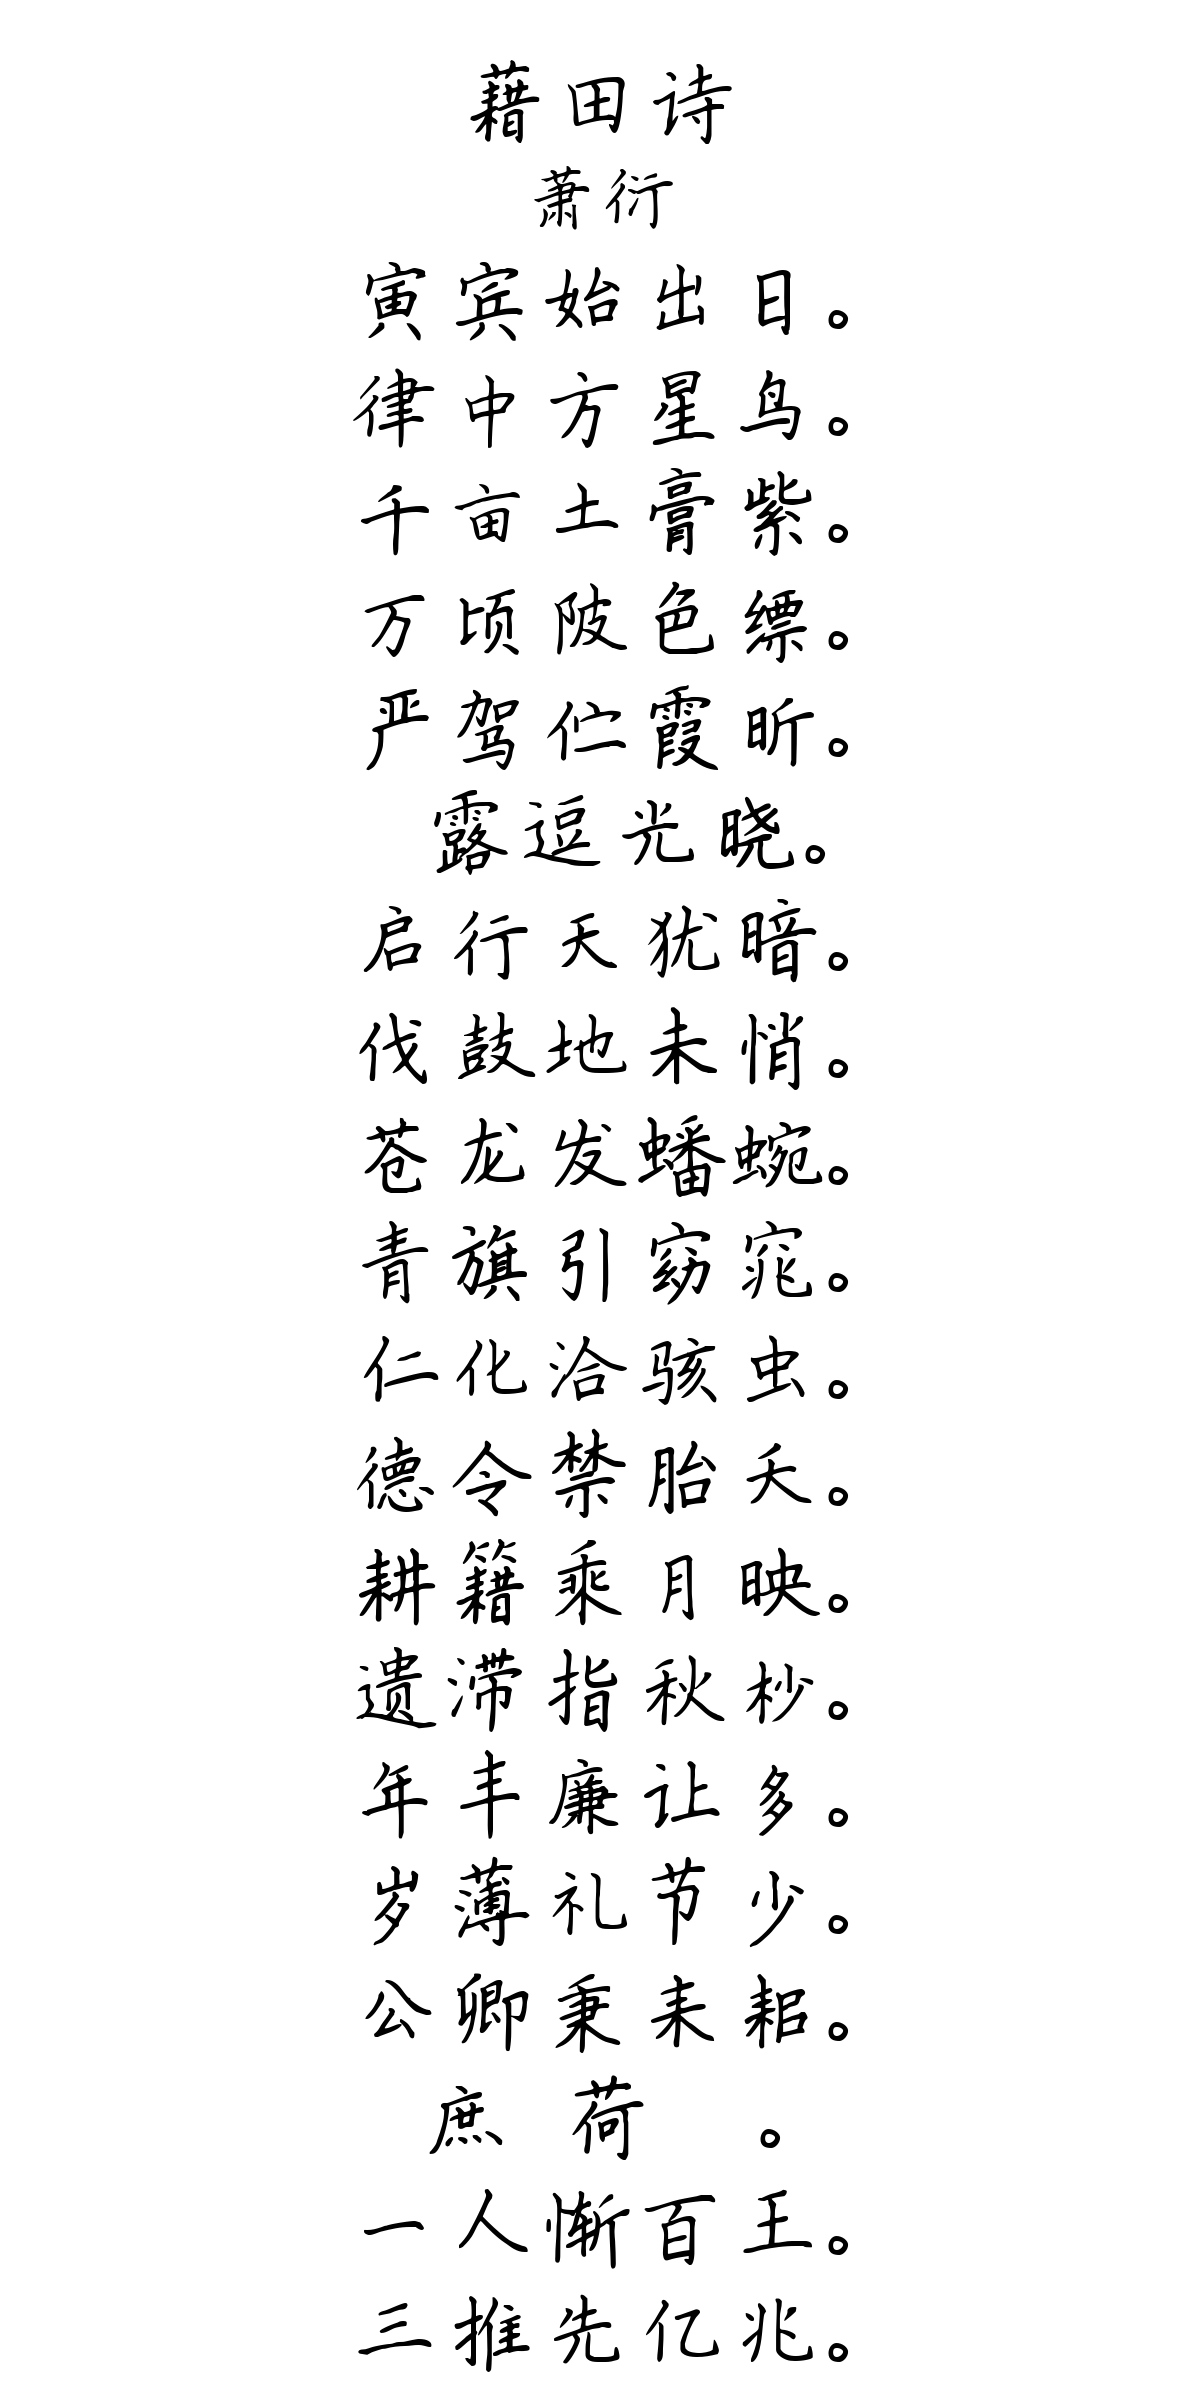 藉田诗
萧衍
寅宾始出日。
律中方星鸟。
千亩土膏紫。
万顷陂色缥。
严驾伫霞昕。
露逗光晓。
启行天犹暗。
伐鼓地未悄。
苍龙发蟠蜿。
青旗引窈窕。
仁化洽骇虫。
德令禁胎夭。
耕籍乘月映。
遗滞指秋杪。
年丰廉让多。
岁薄礼节少。
公卿秉耒耜。
庶 荷 。
一人惭百王。
三推先亿兆。